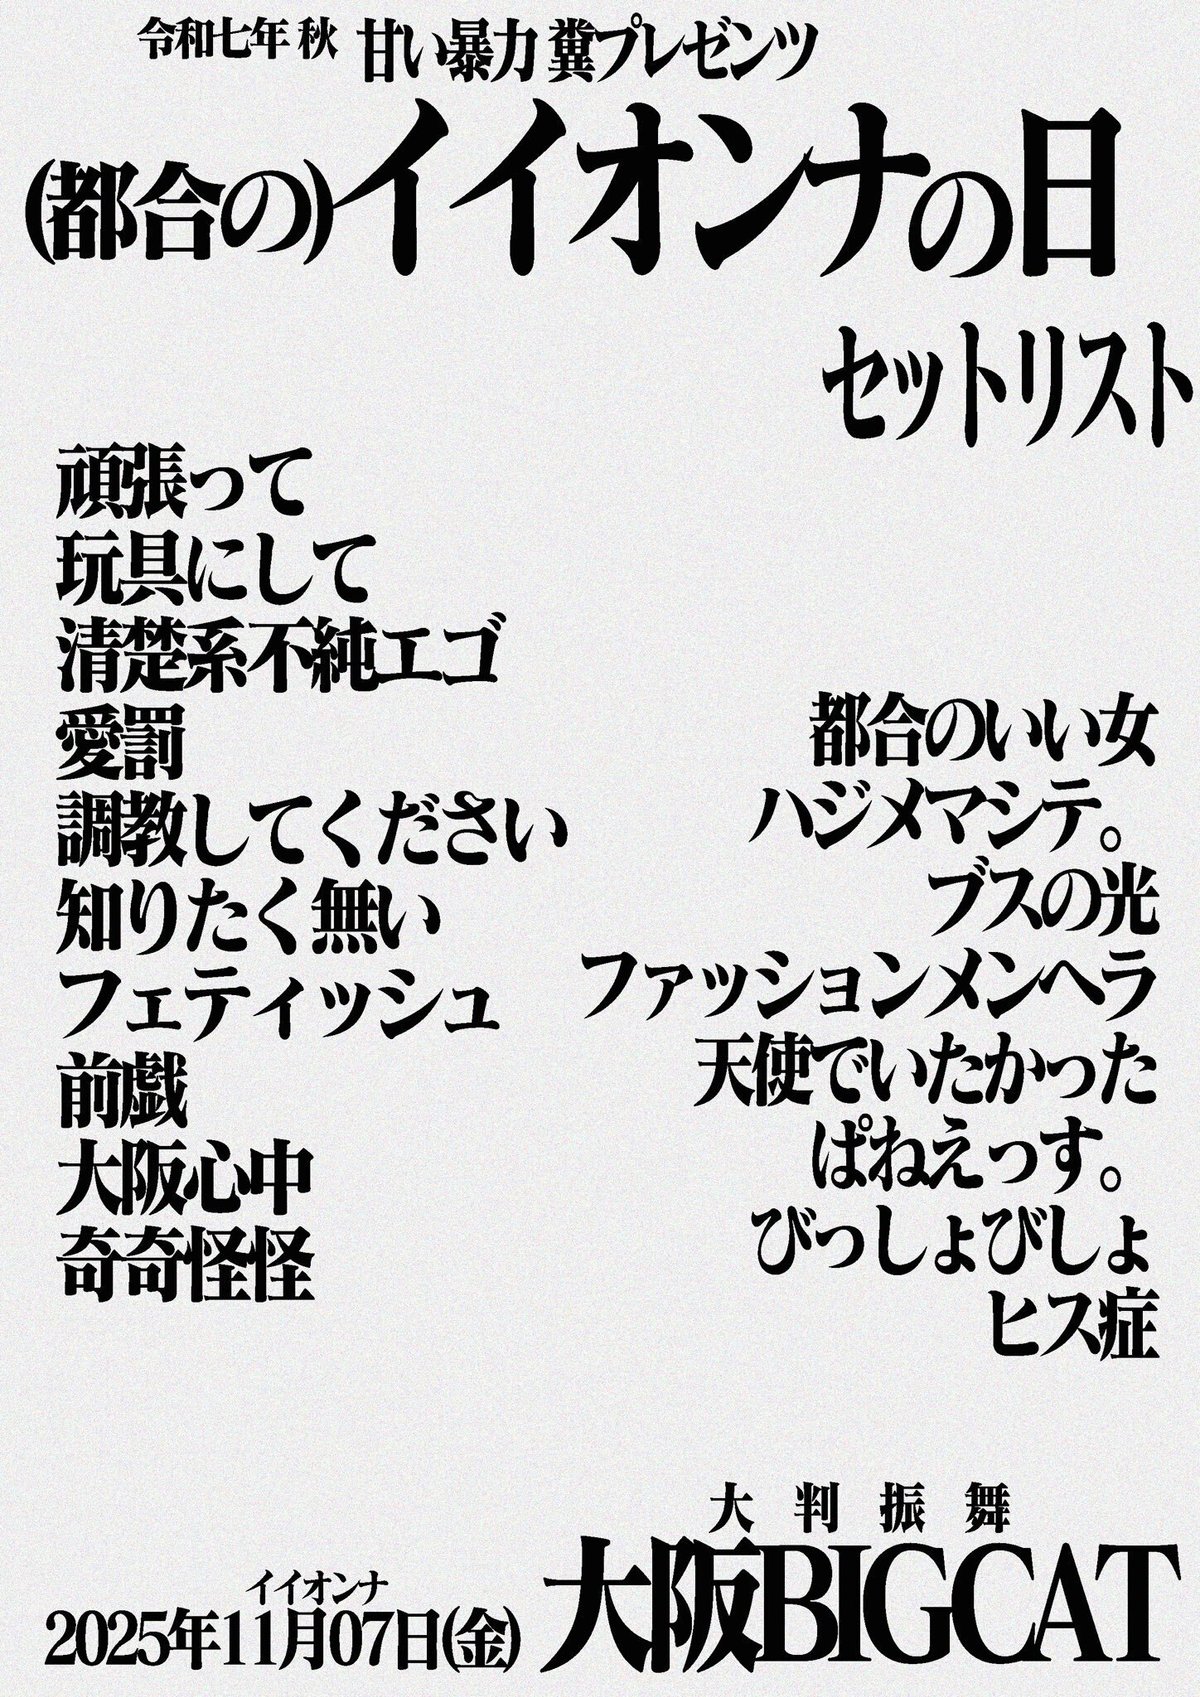 令和七年 秋 甘い暴力 糞プレゼンツ
(都合の)イイオンナの日
セットリスト
頑張って
玩具にして
清楚系不純エゴ
愛罰
調教してください
知りたく無い
フェティッシュ
前戯
大阪心中
奇奇怪怪
都合のいい女
ハジメマシテ。
ブスの光
ファッションメンヘラ
天使でいたかった
ぱねえっす。
びっしょびしょ
ヒス症
大判振舞
大阪BIGCAT
イイオンナ
2025年11月07日(金)